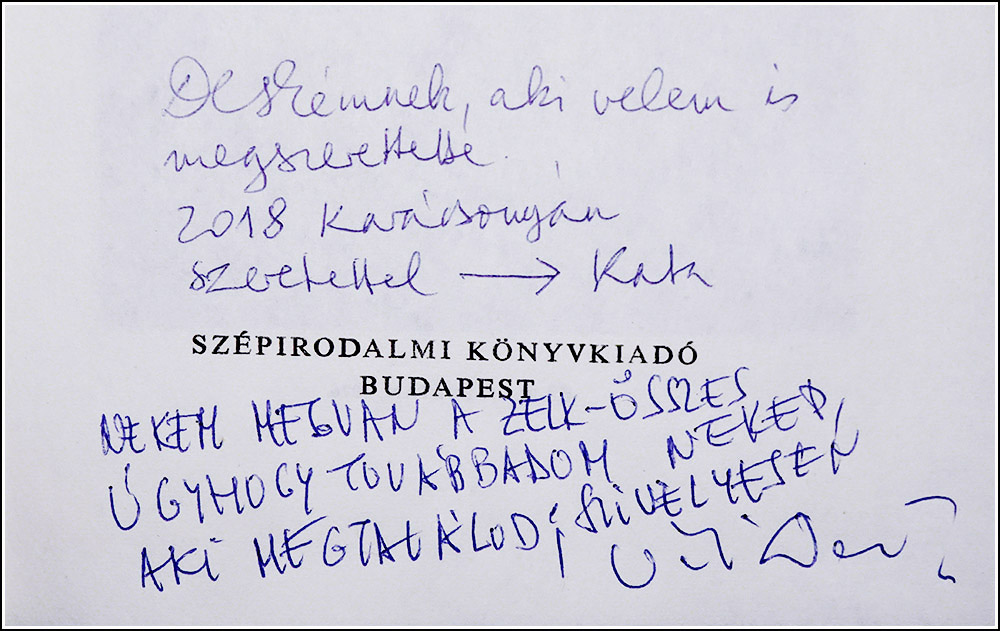 Deskémnek, aki velem is
megszerettette.
2018 Karácsonyán
szeretettel → Kata
SZÉPIRODALMI KÖNYVKIADÓ
BUDAPEST
NEKEM MEGVAN A ZELK-ÖSSZES
ÚGYHOGY TOVÁBBADOM NEKED,
AKI MEGTALÁLOD! SZÍVÉLYESEN